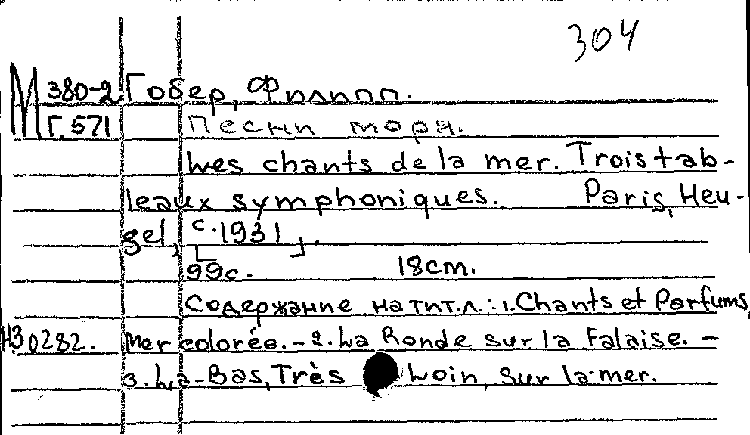 304
М 380-2 Гобер, Филипп.
Г. 571 Песни моря.
Les chants de la mer. Trois tab-
leaux symphoniques. Paris, Heu-
gel, [c. 1931].
99с. 18см.
Содержание на тит.л.: 1. Chants et Parfums,
Н30282. Mer colorée. - 2. La Ronde sur la Falaise. -
3. La-Bas, Très Loin, Sur la mer.